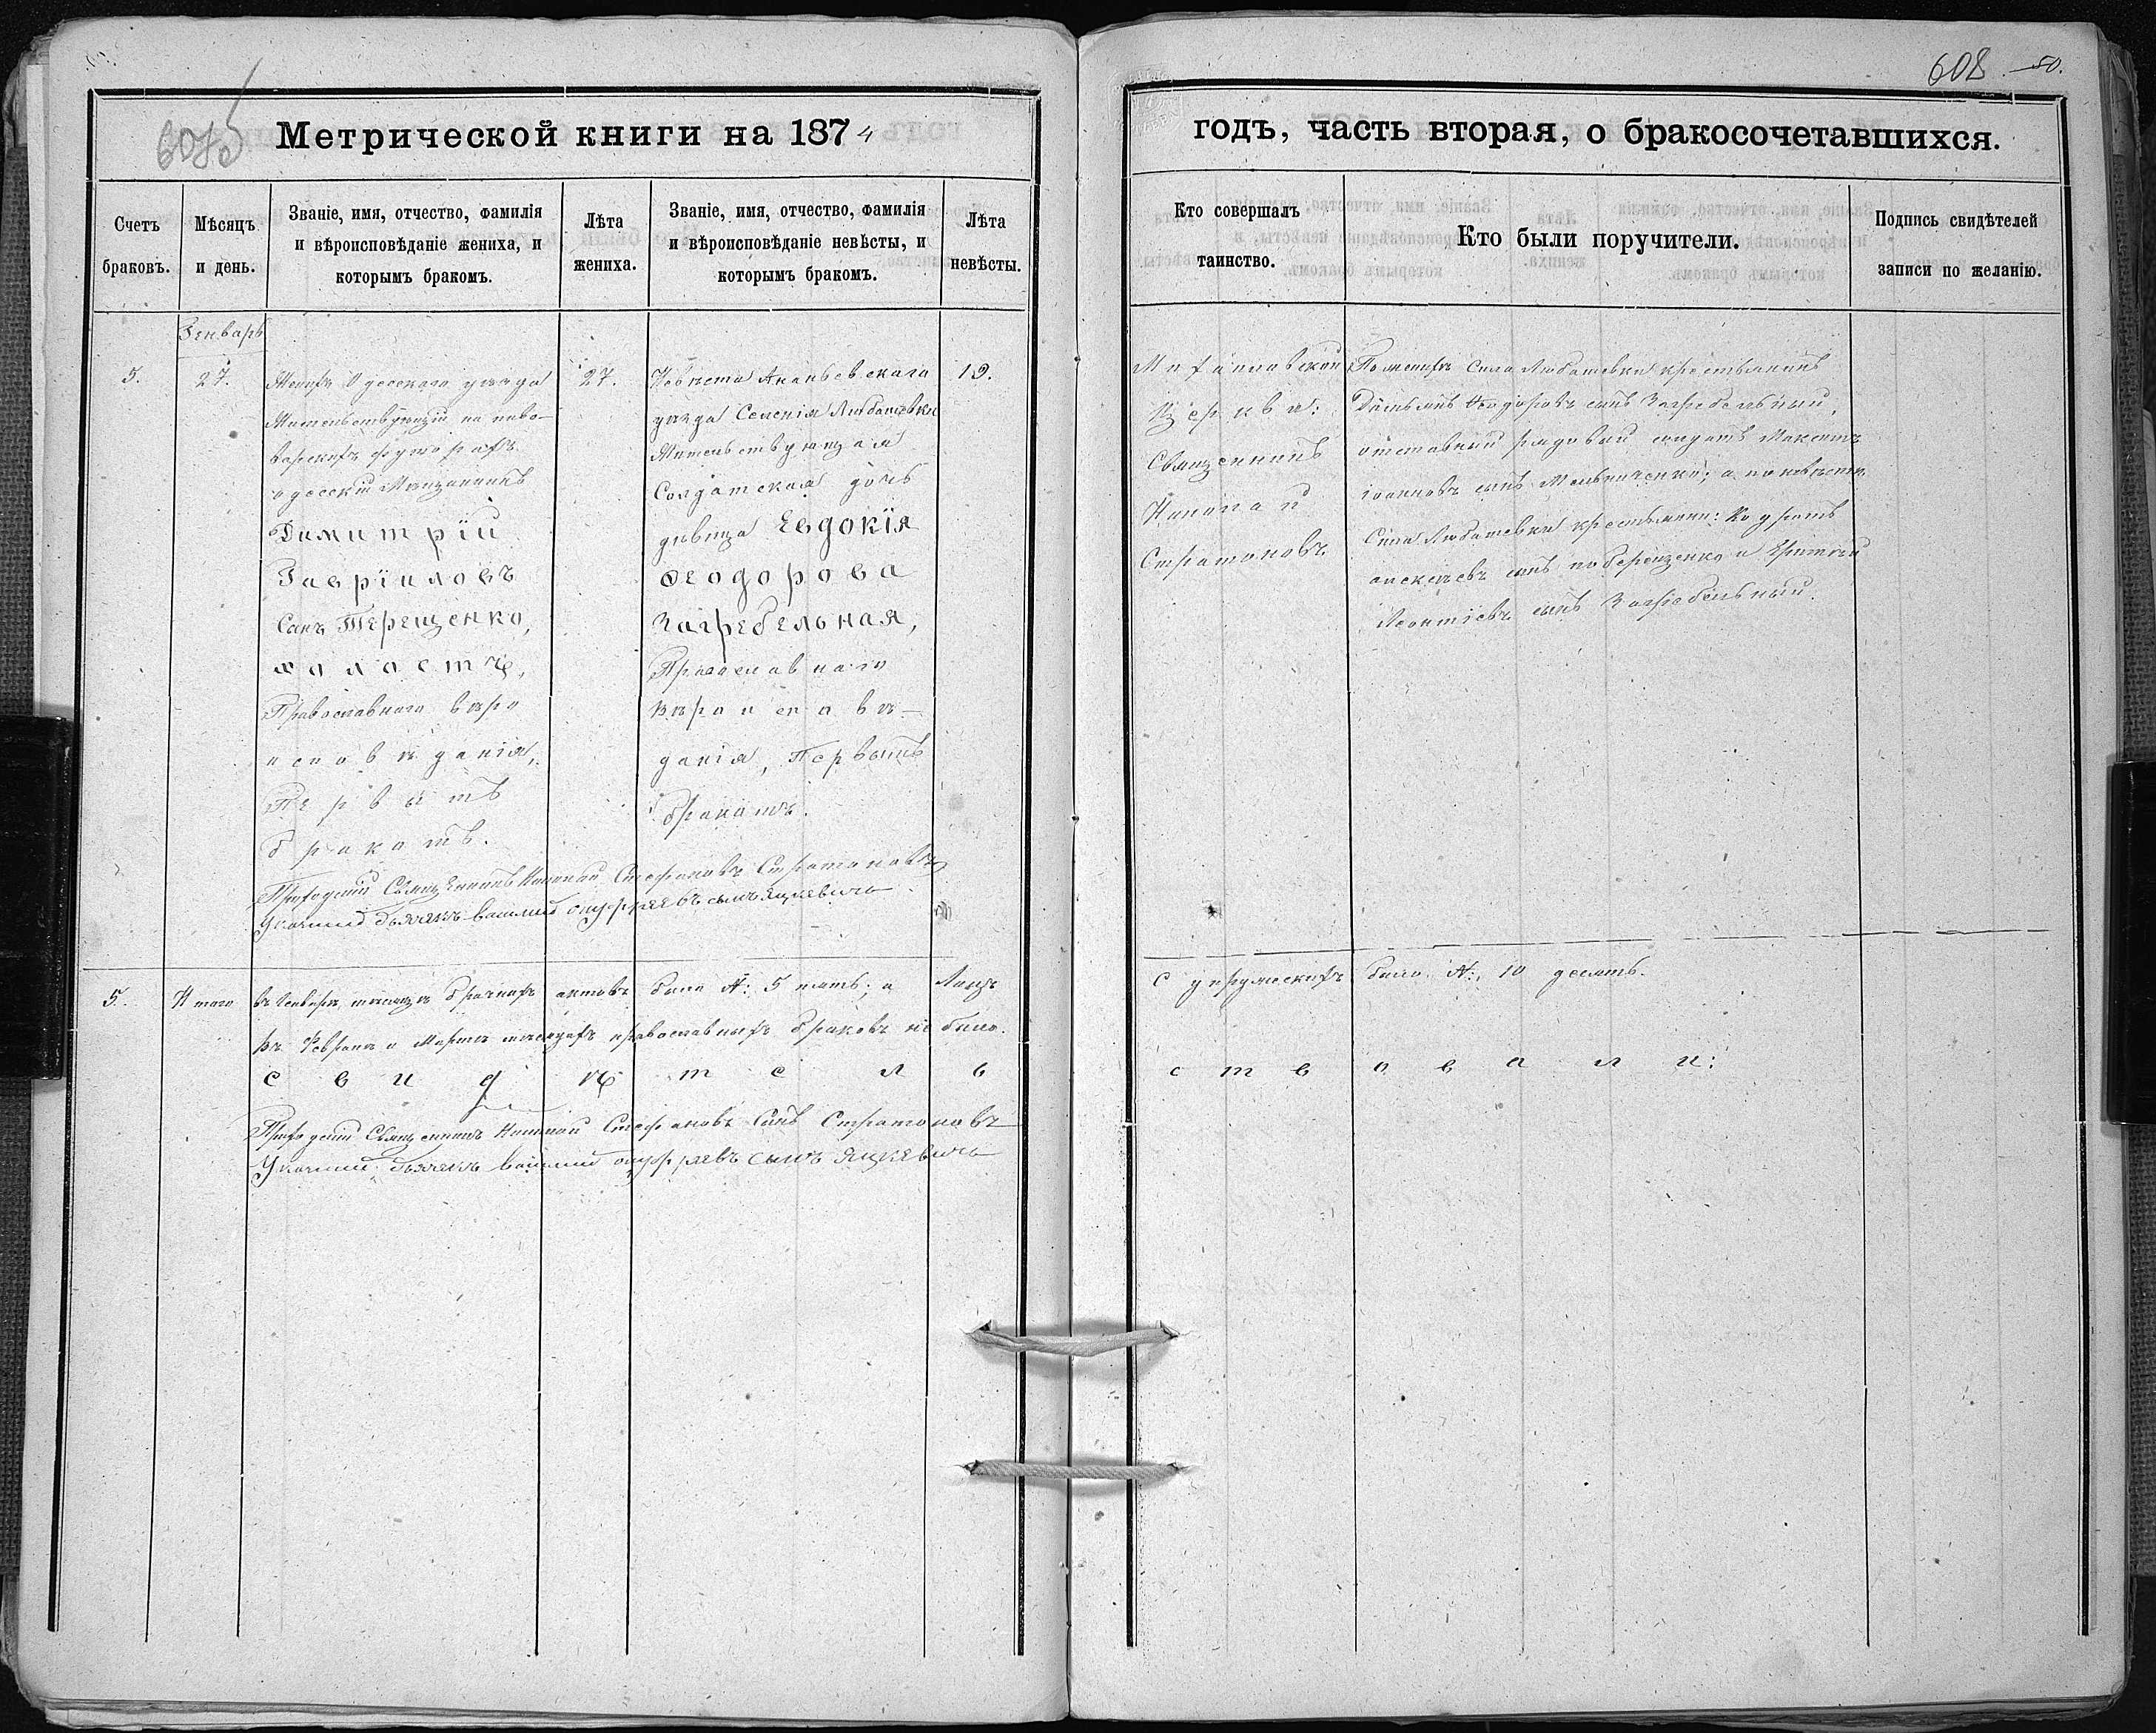 608 50.
Метрической книги на 1874
годъ, часть вторая, о бракосочетавшихся.
Счетъ браковъ.
Мѣсяцъ и день.
Званіе, имя, отчество, фамилія
и вѣроисповѣданіе жениха, и
которымъ бракомъ.
Лѣта
жениха.
Званіе, имя, отчество, фамилія
и вѣроисповѣданіе невѣсты, и
которымъ бракомъ.
Лѣта
невѣсты.
Кто совершалъ
таинство.
Кто были поручители.
Подпись свидѣтелей
записи по желанію.
Генварь
5. 27.
Женихъ Одесского уезда
Жительствующій на
одесскій Мѣщанинъ
Димитрій
Гавріиловъ
Сынъ Терещенко,
холостъ,
Православнаго вѣро
исповѣданія,
Первымъ
бракомъ.
27.
Невѣста Ананьевскаго
уезда Селенія Любашевки
Жительствующая
Солдатская дочь
дѣвица Евдокія
Ѳеодорова
Загребельная,
Православнаго
Вѣроисповѣ–
данія, Первымъ
бракомъ.
19.
Михайловской
Церкви:
Священникъ
Николай
Стратоновъ
По женихѣ Села Любашевки крестьянинъ
Ѳеодоровъ сынъ Загребельный,
отставный рядовый солдатъ Максимъ
Іоанновъ сынъ Мельниченко; а по невѣсте
Села Любашевки крестьяне: Кодратъ
Алексѣевъ сынъ и
Леонтіевъ сынъ Загребельный.
Приходскій Священникъ Николай Стефановъ Стратоновъ
дьячекъ Василий Онуфриевъ сынъ Яцкевичъ
5. Итого въ Генварѣ месяцѣ брачныхъ актовъ было №: 5 пять; а Лицъ
съ супружескихъ было №: 10 десять.
въ Февралѣ и Мартѣ месяцахъ православныхъ браковъ не было.
свидѣтельствовали:
Приходскій Священникъ Николай Стефановъ Сынъ Стратоновъ
дьячекъ Василий Онуфриевъ сынъ Яцкевичъ